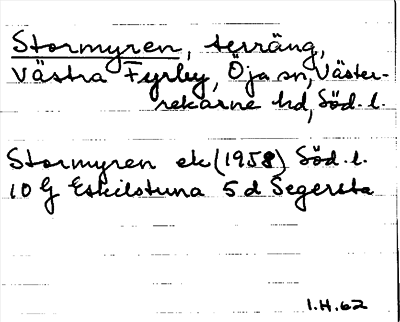 Stormyren, terräng,
Västra Fyrby, Öja sn, Väster-
rekarne hd, Söd. l.
Stormyren ek (1958) Söd. l.
10 G Eskilstuna 5 d Segersta
I.H. 62